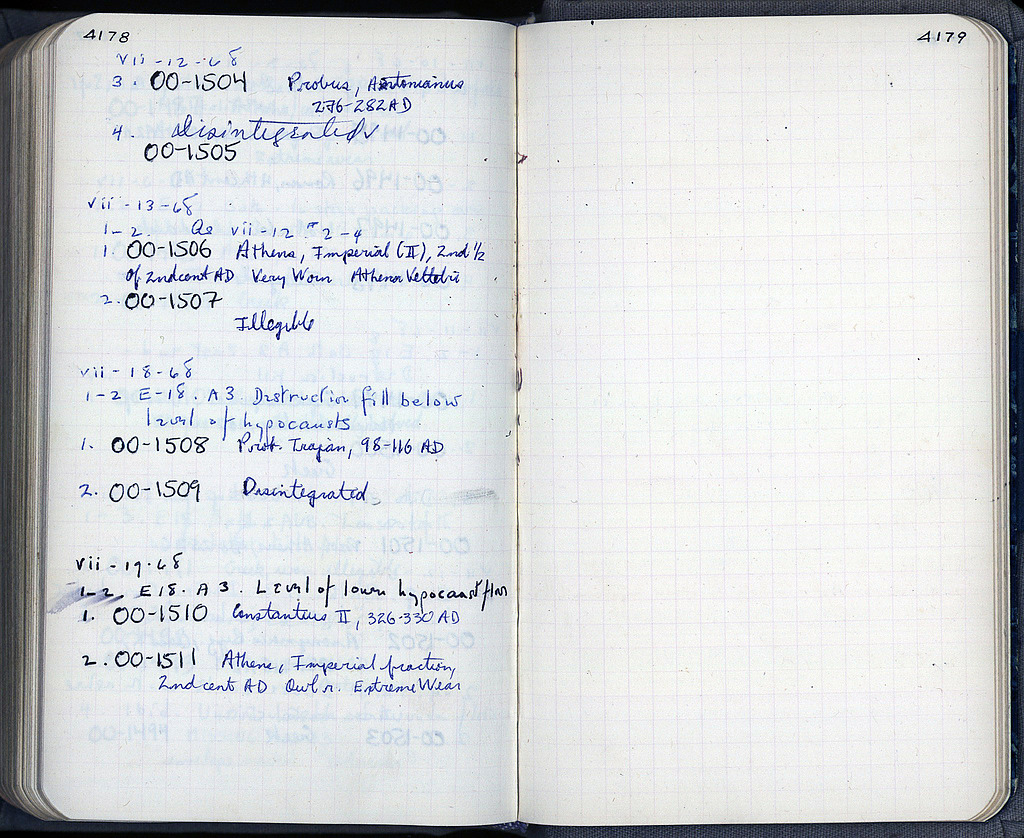 4178
vii-12-68
3. OO-1504 Probus, Antonianus
276-282 AD
4. Disintegrated
OO-1505
vii-13-68
1-2. As vii-12 # 2-4
1. OO-1506 Athens, Imperial (II), 2nd 1/2
of 2nd cent AD Very Worn Athena
2. OO-1507
Illegible
vii-18-68
1-2 E-18. A3. Destruction fill below
level of hypocausts
1. OO-1508 Prob. Trajan, 98-116 AD
2. OO-1509 Disintegrated
vii-19-68
1-2. E18. A3. Level of lower hypocaust floor
1. OO-1510 Constantius II, 326-330 AD
2. OO-1511 Athens, Imperial fraction,
2nd cent AD Owl r. Extreme Wear
4179